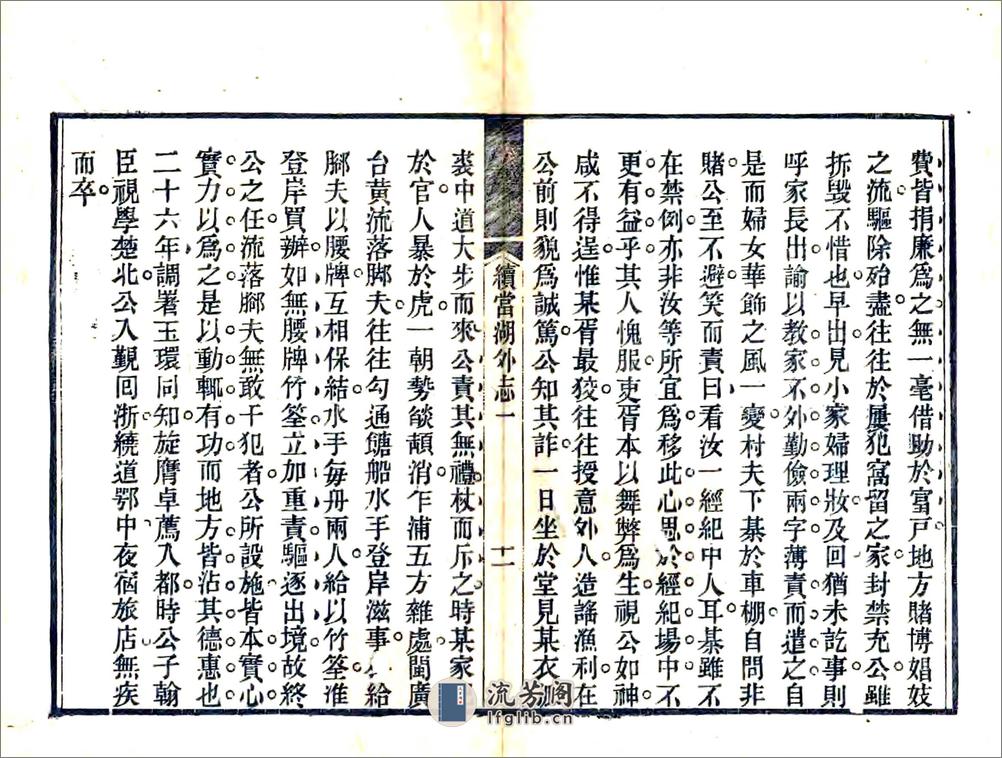 費皆捐廉爲之無一毫借助於富戸地方賭博娼妓
之流驅除殆盡往往於屢犯窩留之家封禁充公雖
拆毀不惜也早出見小家婦理妝及回猶未訖事則
呼家長出諭以教家不外勤儉兩字薄責而遣之自
是而婦女華飾之風一變村夫下棊於車棚自問非
賭公至不避笑而責曰看汝一經紀中人耳棊雖不
在禁倒亦非汝等所宜爲移此心思於經紀場中不
更有益乎其人愧服吏胥本以舞弊爲生視公如神
咸不得逞惟某胥最狡往往授意外人造謠漁利在
公前則貌爲誠篤公知其詐一日坐於堂見某衣
續當湖外志一
十一
裘中道大步而來公責其無禮杖而斥之時某家
於官人暴於虎一朝勢燄頓消乍浦五方雜處閩廣
台黃流落脚夫往往勾通艍船水手登岸滋事給
腳夫以腰牌互相保結水手每册兩人給以竹筌准
登岸買辦如無腰牌竹筌立加重責驅逐出境故終
公之任流落腳夫無敢干犯者公所設施皆本實心
實力以爲之是以動輒有功而地方皆沾其德惠也
二十六年調署玉環同知旋膺卓薦入都時公子翰
臣視學楚北公入覲回浙繞道鄂中夜宿旅店無疾
而卒
流芳閣
lfglib.cn